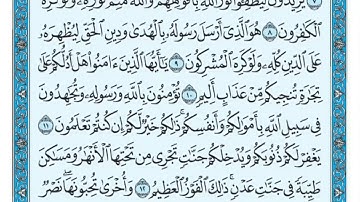 يُرِيدُونَ لِيُطْفِـُٔوا۟ نُورَ ٱللَّهِ بِأَفْوَٰهِهِمْ وَٱللَّهُ مُتِمُّ نُورِهِۦ وَلَوْ كَرِهَ
ٱلْكَٰفِرُونَ ٨ هُوَ ٱلَّذِىٓ أَرْسَلَ رَسُولَهُۥ بِٱلْهُدَىٰ وَدِينِ ٱلْحَقِّ لِيُظْهِرَهُۥ
عَلَى ٱلدِّينِ كُلِّهِۦ وَلَوْ كَرِهَ ٱلْمُشْرِكُونَ ٩ يَٰٓأَيُّهَا ٱلَّذِينَ ءَامَنُوا۟ هَلْ أَدُلُّكُمْ عَلَىٰ
تِجَٰرَةٍ تُنجِيكُم مِّنْ عَذَابٍ أَلِيمٍ ١٠ تُؤْمِنُونَ بِٱللَّهِ وَرَسُولِهِۦ وَتُجَٰهِدُونَ
فِى سَبِيلِ ٱللَّهِ بِأَمْوَٰلِكُمْ وَأَنفُسِكُمْ ۚ ذَٰلِكُمْ خَيْرٌ لَّكُمْ إِن كُنتُمْ تَعْلَمُونَ ١١
يَغْفِرْ لَكُمْ ذُنُوبَكُمْ وَيُدْخِلْكُمْ جَنَّٰتٍ تَجْرِى مِن تَحْتِهَا ٱلْأَنْهَٰرُ وَمَسَٰكِنَ
طَيِّبَةً فِى جَنَّٰتِ عَدْنٍ ۚ ذَٰلِكَ ٱلْفَوْزُ ٱلْعَظِيمُ ١٢ وَأُخْرَىٰ تُحِبُّونَهَا ۖ نَصْرٌ